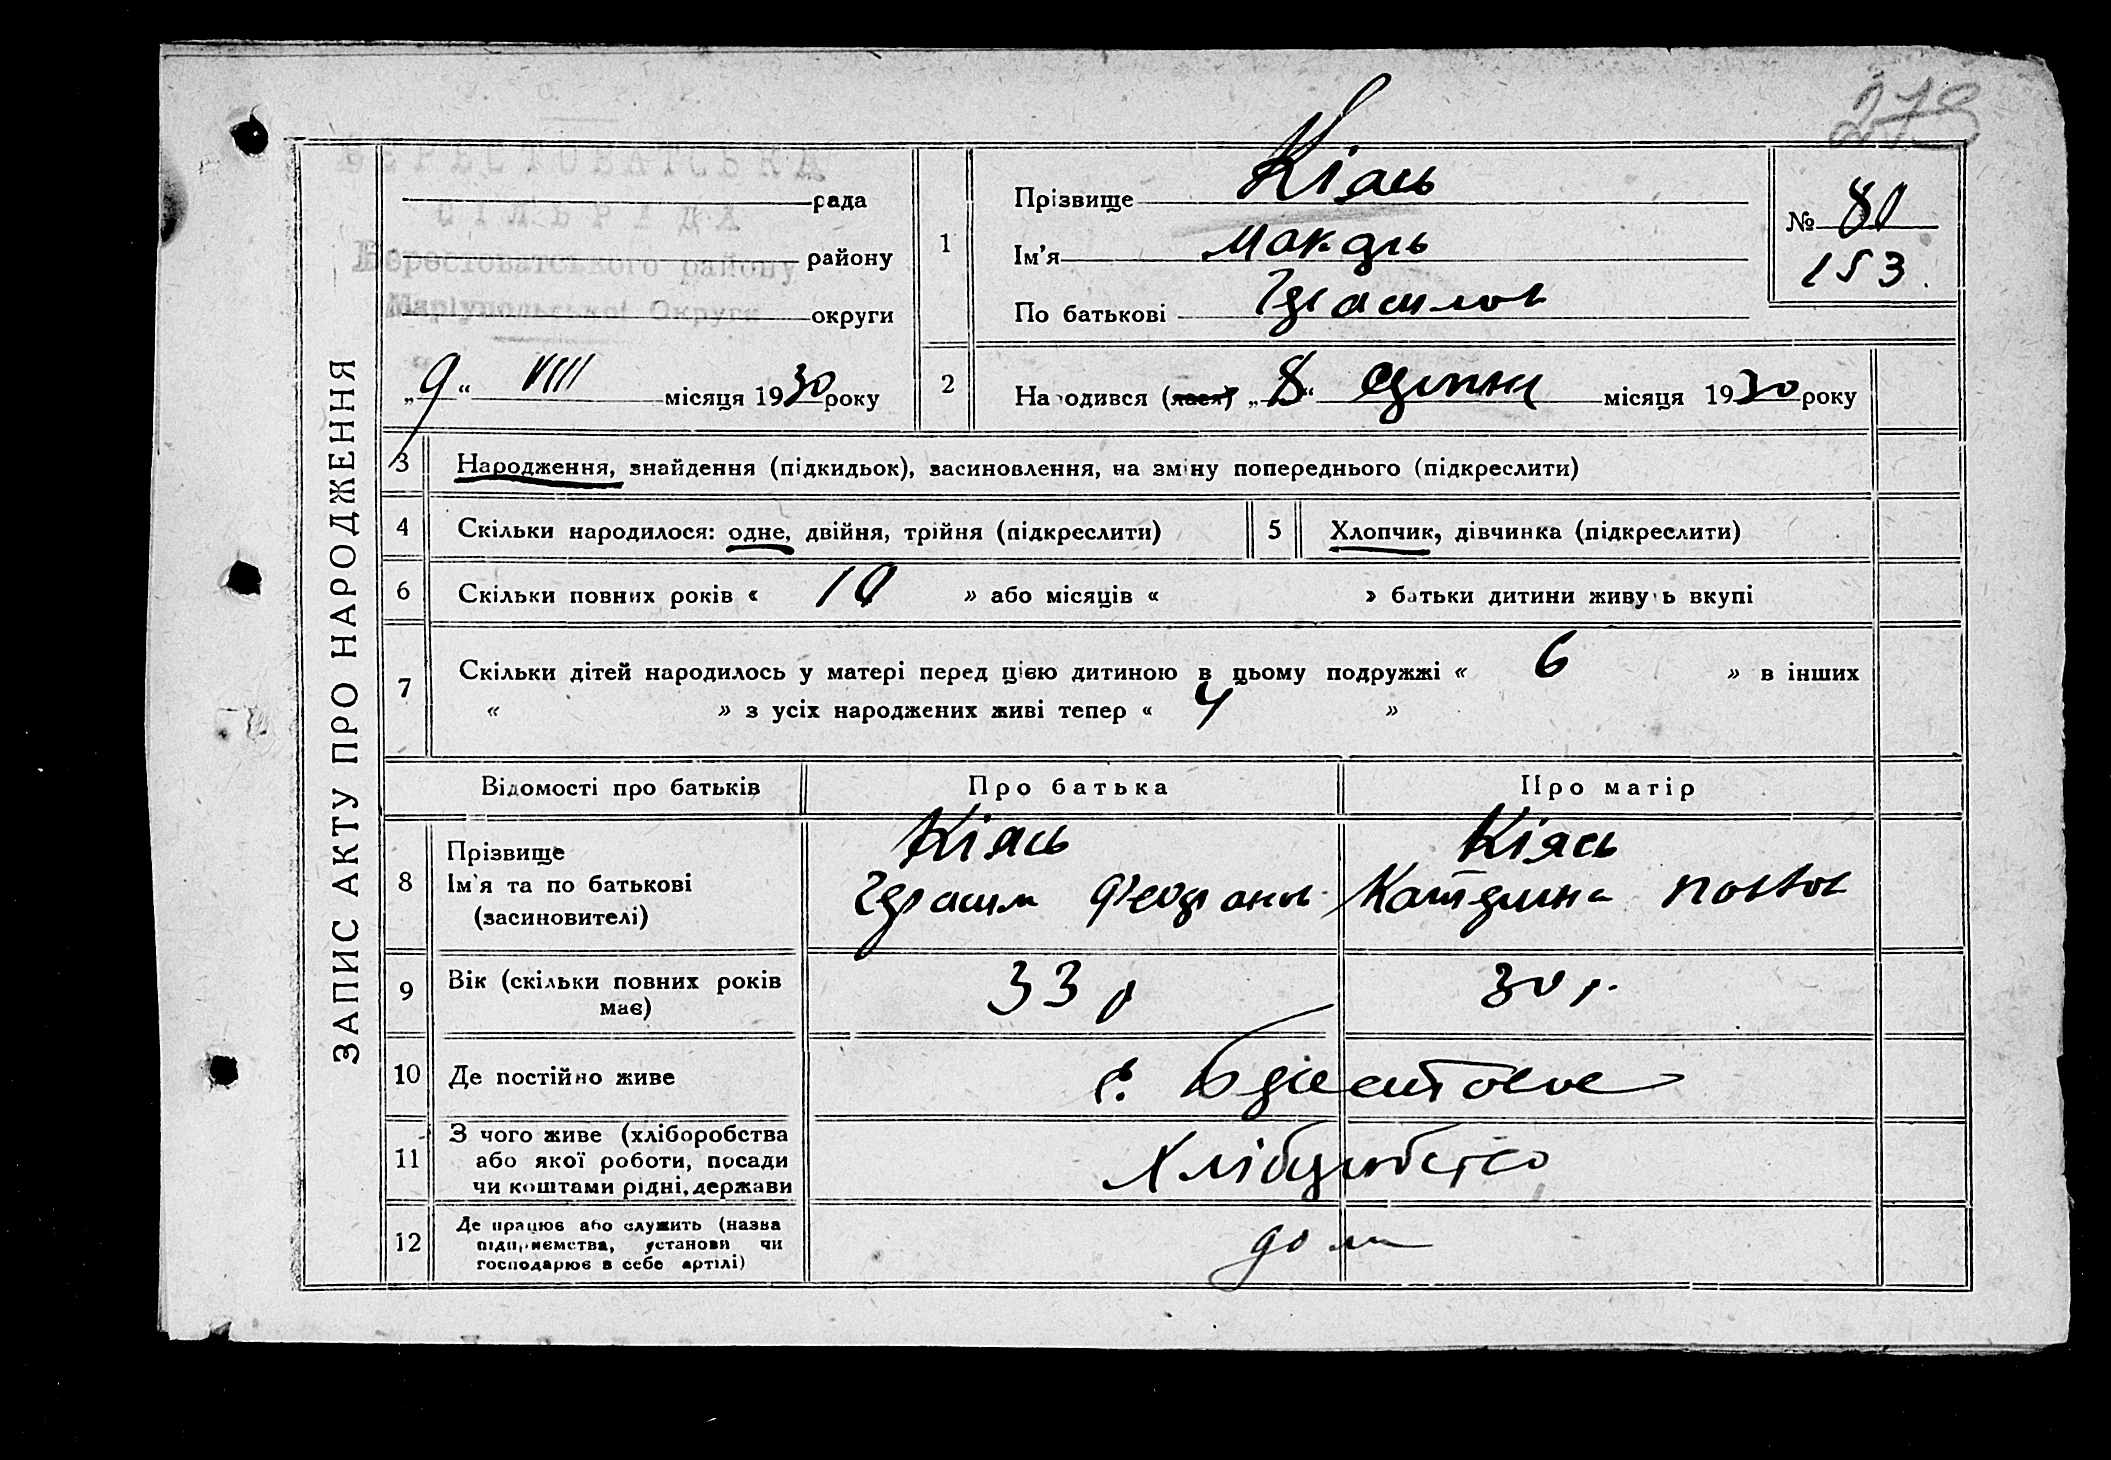 273
ЗАПИС АКТУ ПРО НАРОДЖЕННЯ
БЕРЕСТОВАТСЬКА
СІЛЬРАДА
Берестоватського району
Маріупольської Округи
рада
району
округи
„9“ VIII місяця 1930 року
1
Прізвище Кіясь
Ім'я
По батькові
№ 81
153.
2
Народився (лася) „8“ серпня місяця 1930 року
3 Народження, знайдення (підкидьок), засиновлення, на зміну попереднього (підкреслити)
4 Скільки народилося: одне, двійня, трійня (підкреслити)
5 Хлопчик, дівчинка (підкреслити)
6 Скільки повних років « 10 » або місяців « » батьки дитини живуть вкупі
7 Скільки дітей народилось у матері перед цією дитиною в цьому подружжі « 6 » в інших
« » з усіх народжених живі тепер « 4 »
Відомості про батьків
Про батька
Про матір
8 Прізвище
Ім'я та по батькові
(засиновителі)
Кіясь
Герасим
Кіясь
Катерина
9 Вік (скільки повних років має)
33 р
30 р.
10 Де постійно живе
с. Берестове
11 З чого живе (хліборобства
або якої роботи, посади
чи коштами рідні, держави
Хліборобство
12 Де працює або служить (назва
підприємства, установи чи
господарює в себе артілі)
дома